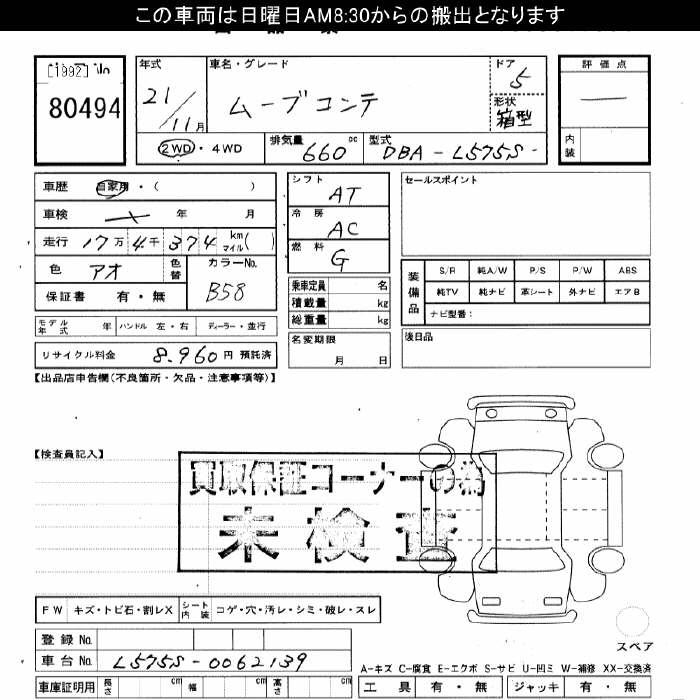 この車両は日曜日AM8:30からの搬出となります
[1992] No
80494
年式
21/11月
車名・グレード
ムーブコンテ
ドア
5
形状
箱型
2WD・4WD
排気量
660 cc
型式
DBA-L575S-
評価点
内装
車歴 自家用・( )
車検 年 月
走行 17万 4千 374 km マイル( )
色 アオ 色替
カラーNo.
B58
保証書 有・無
モデル年式 年 ハンドル 左・右 ディーラー・並行
リサイクル料金 8,960円 預託済
シフト
AT
冷房
AC
燃料
G
乗車定員 名
積載量 kg
総重量 kg
名変期限
月 日
セールスポイント
装備品
S/R 純A/W P/S P/W ABS
純TV 純ナビ 革シート 外ナビ エアB
ナビ型番:
後日品
【出品店申告欄(不良箇所・欠品・注意事項等)】
【検査員記入】
買取保証コーナーの為
未検査
FW キズ・トビ石・割レX シート内装 コゲ・穴・汚レ・シミ・破レ・スレ
スペア
登録No.
車台No. L575S-0062139
A-キズ C-腐食 E-エクボ S-サビ U-凹ミ W-補修 XX-交換済
車庫証明用 長さ cm 幅 cm 高さ cm
工具 有・無 ジャッキ 有・無